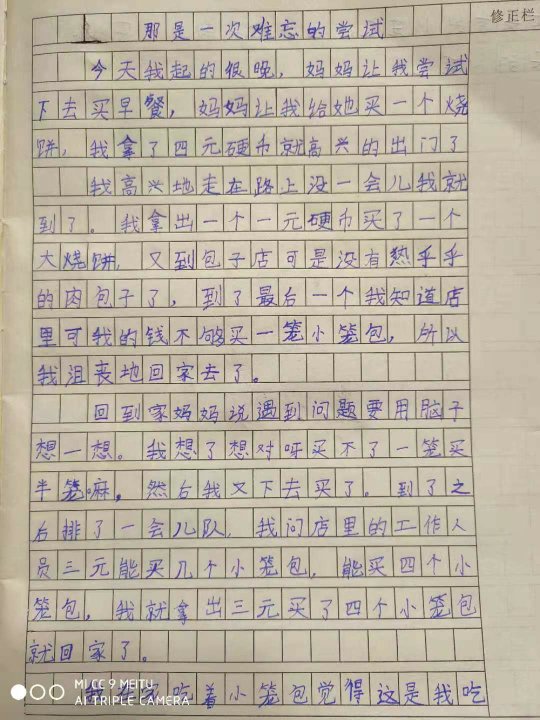 修正栏
那是一次难忘的尝试
今天我起的很晚，妈妈让我尝试
下去买早餐，妈妈让我给她买一个烧
饼，我拿了四元硬币就高兴的出门了
我高兴地走在路上没一会儿我就
到了。我拿出一个一元硬币买了一个
大烧饼，又到包子店可是没有热乎乎
的肉包子了，到了最后一个我知道店
里可我的钱不够买一笼小笼包，所以
我沮丧地回家去了。
回到家妈妈说遇到问题要用脑子
想一想。我想了想对呀买不了一笼买
半笼嘛，然后我又下去买了。到了之
右排了一会儿队，我问店里的工作人
员三元能买几个小笼包，能买四个小
笼包，我就拿出三元买了四个小笼包
就回家了。
吃着小笼包觉得这是我吃
MI CC 9 MEITU
AI TRIPLE CAMERA